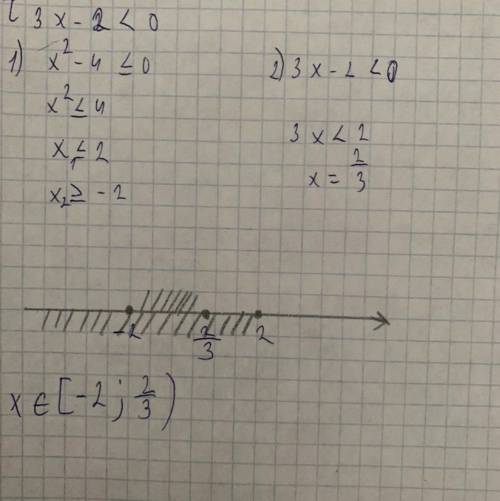 { 3x - 2 < 0
1) x² - 4 ≤ 0
x² ≤ 4
x₁ ≤ 2
x₂ ≥ -2
2) 3x - 2 < 0
3x < 2
x = 2/3
-2 2/3 2
x ∈ [-2; 2/3)